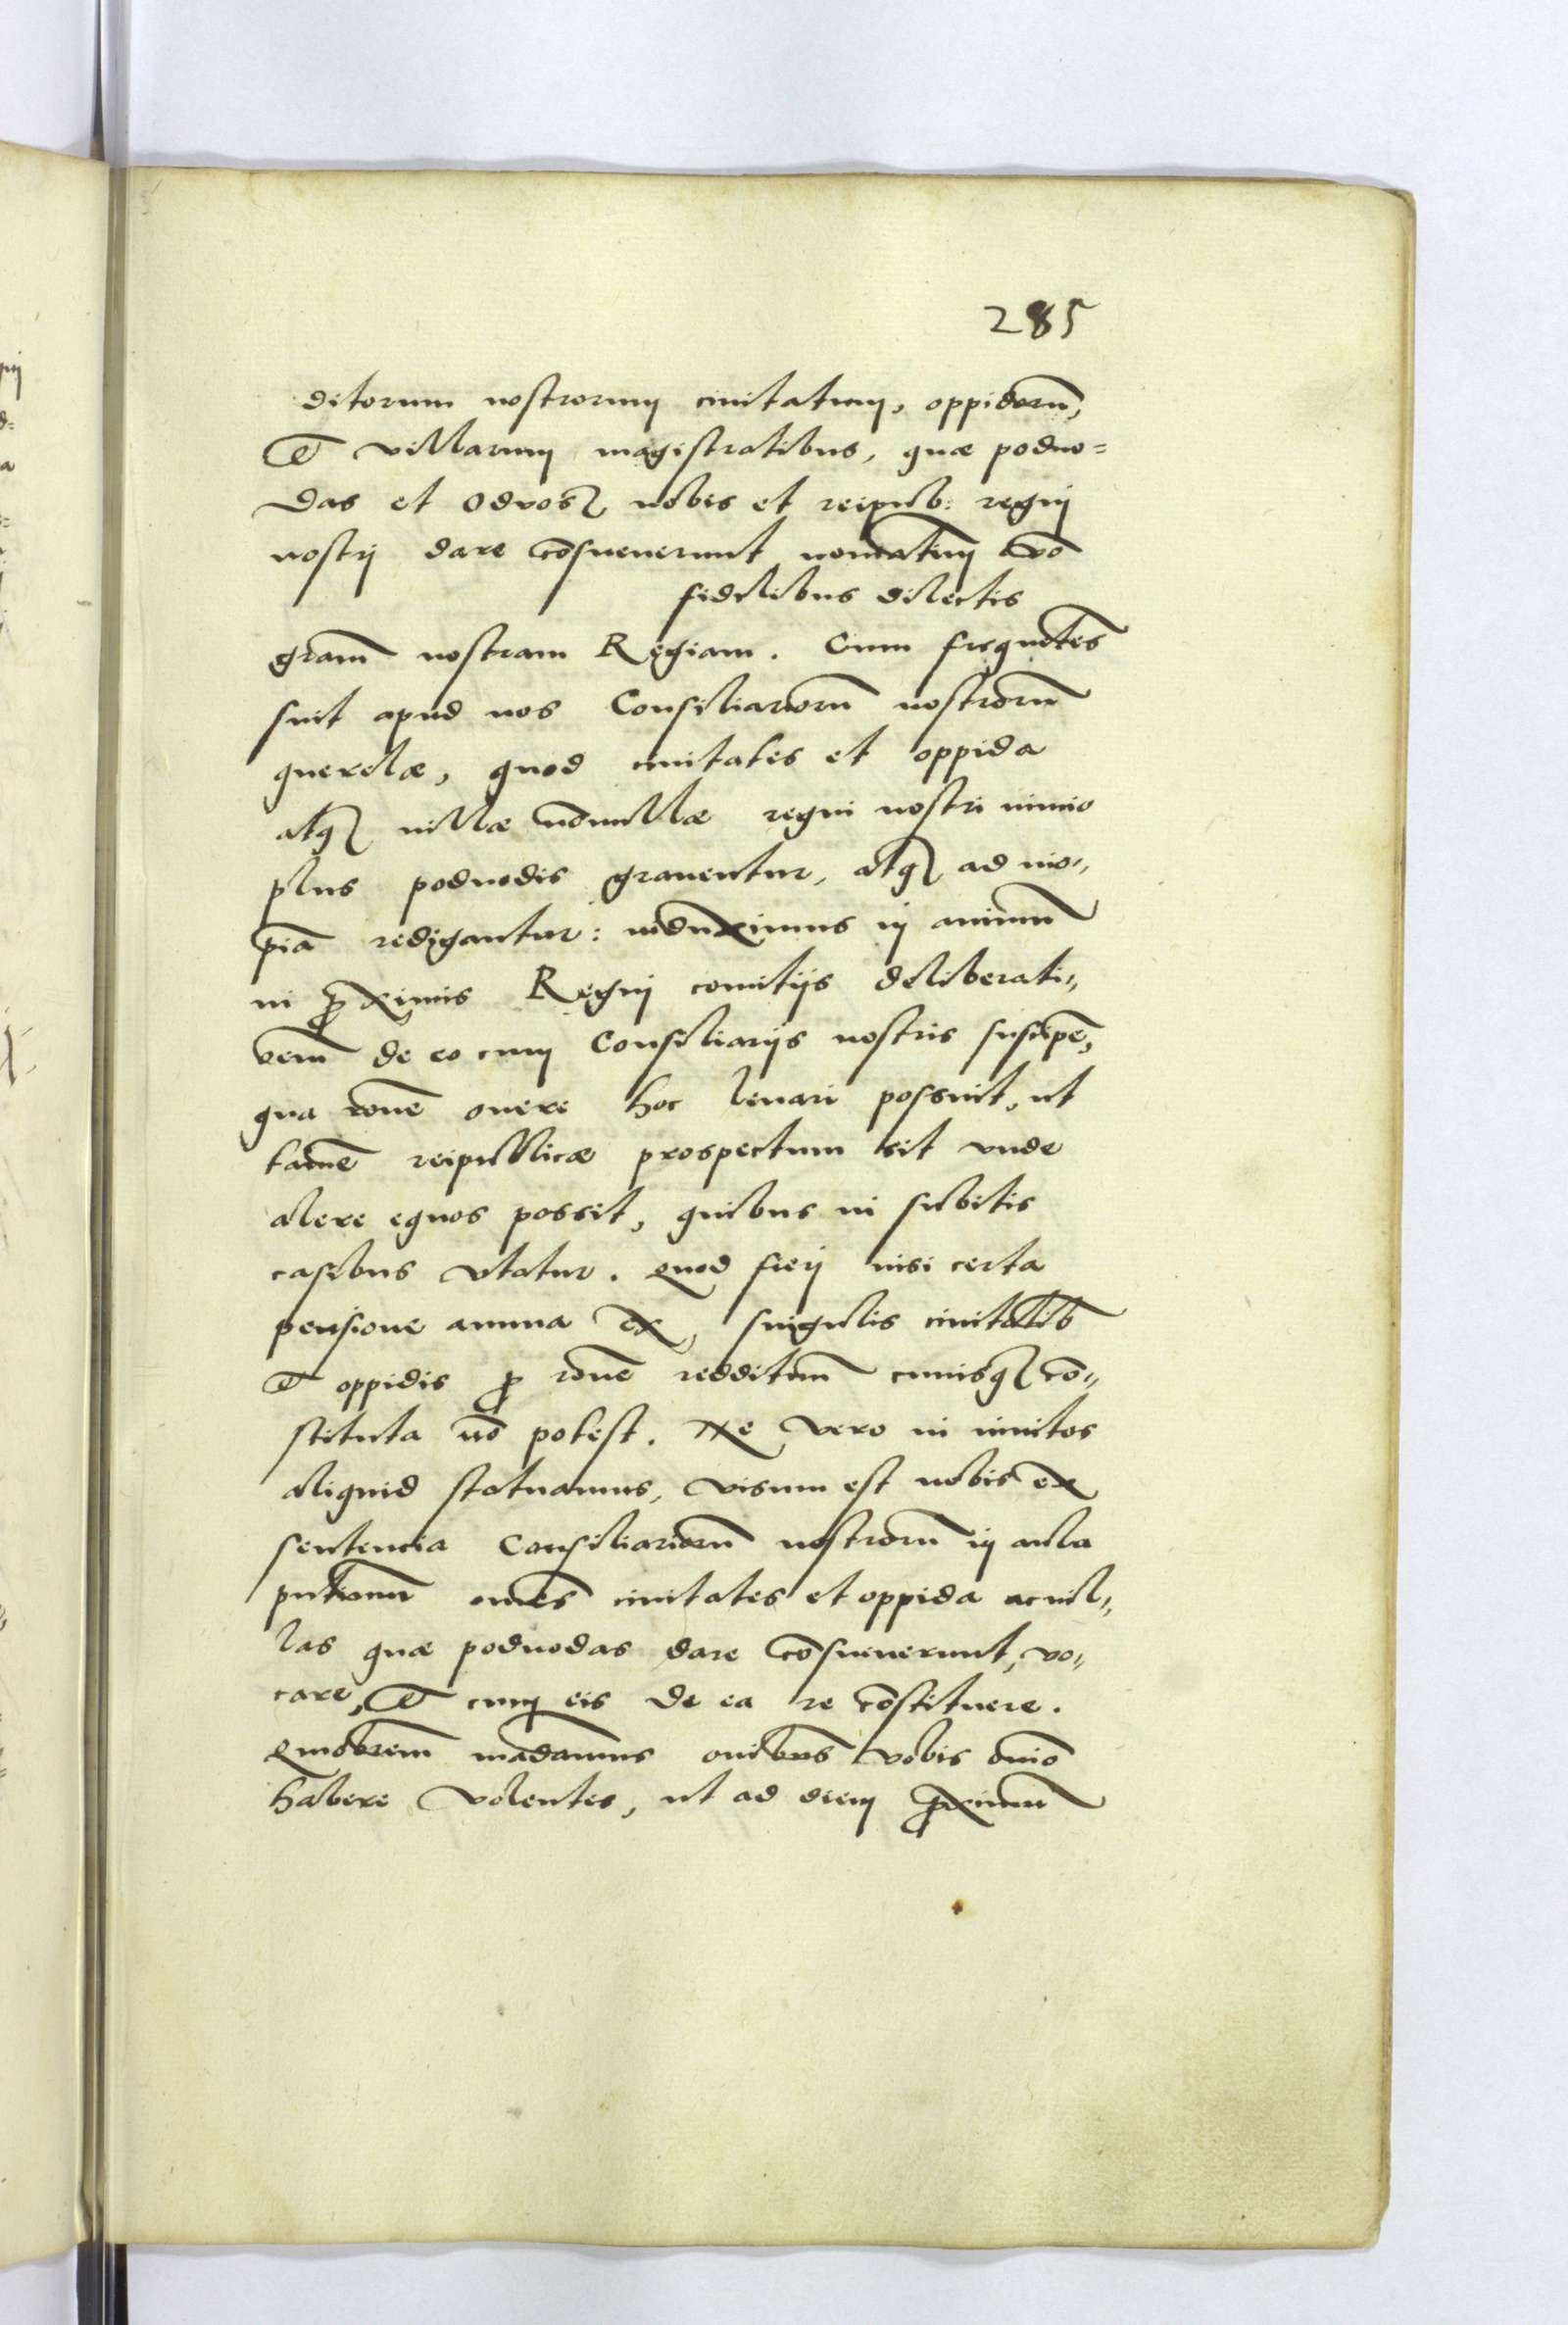 285
ditorum nostrorum ciuitatum, oppidorũ,
Et villarum magistratibus, quæ poduo=
das et Odvosʒ nobis et reipub: regnj
nostrj dare cõsueuerunt nominatim võ
fidelibus dilectis
gratiam̃ nostram Regiam. Cum frequẽtes
sint apud nos Consiliariorũ nostrorũ
querelæ, quod ciuitates et oppida
atqʒ villæ nõnullæ regni nostri nimio
plus poduodis grauentur, atqʒ ad ino„
piã redigantur: induximus in animũ
in ꝓximis Regnj comitijs deliberati„
onem̃ de eo cum Consiliarijs nostris suscipẽ,
qua rõne onere hoc leuari possint, ut
tamẽ reipublicæ prospectum sit vnde
alere equos possit, quibus in subitis
casibus vtatur. Quod fierj nisi certa
pensione annua ex singulis ciuitatib̃
Et oppidis ꝓ rõne reddituũ cuiusqʒ cõ„
stituta nõ potest. Ne vero in inuitos
aliquid statuamus, visum est nobis ex
sentencia Consiliariorũ nostrorũ in aula
pñtium̃ omẽs ciuitates et oppida ac vil„
las quæ poduodas dare cõsueuerunt, vo„
care, Et cum eis de ea re cõstituere.
Quãobrem̃ mãdamus oñibus vobis oñio
habere volentes, ut ad diem ꝓximũ